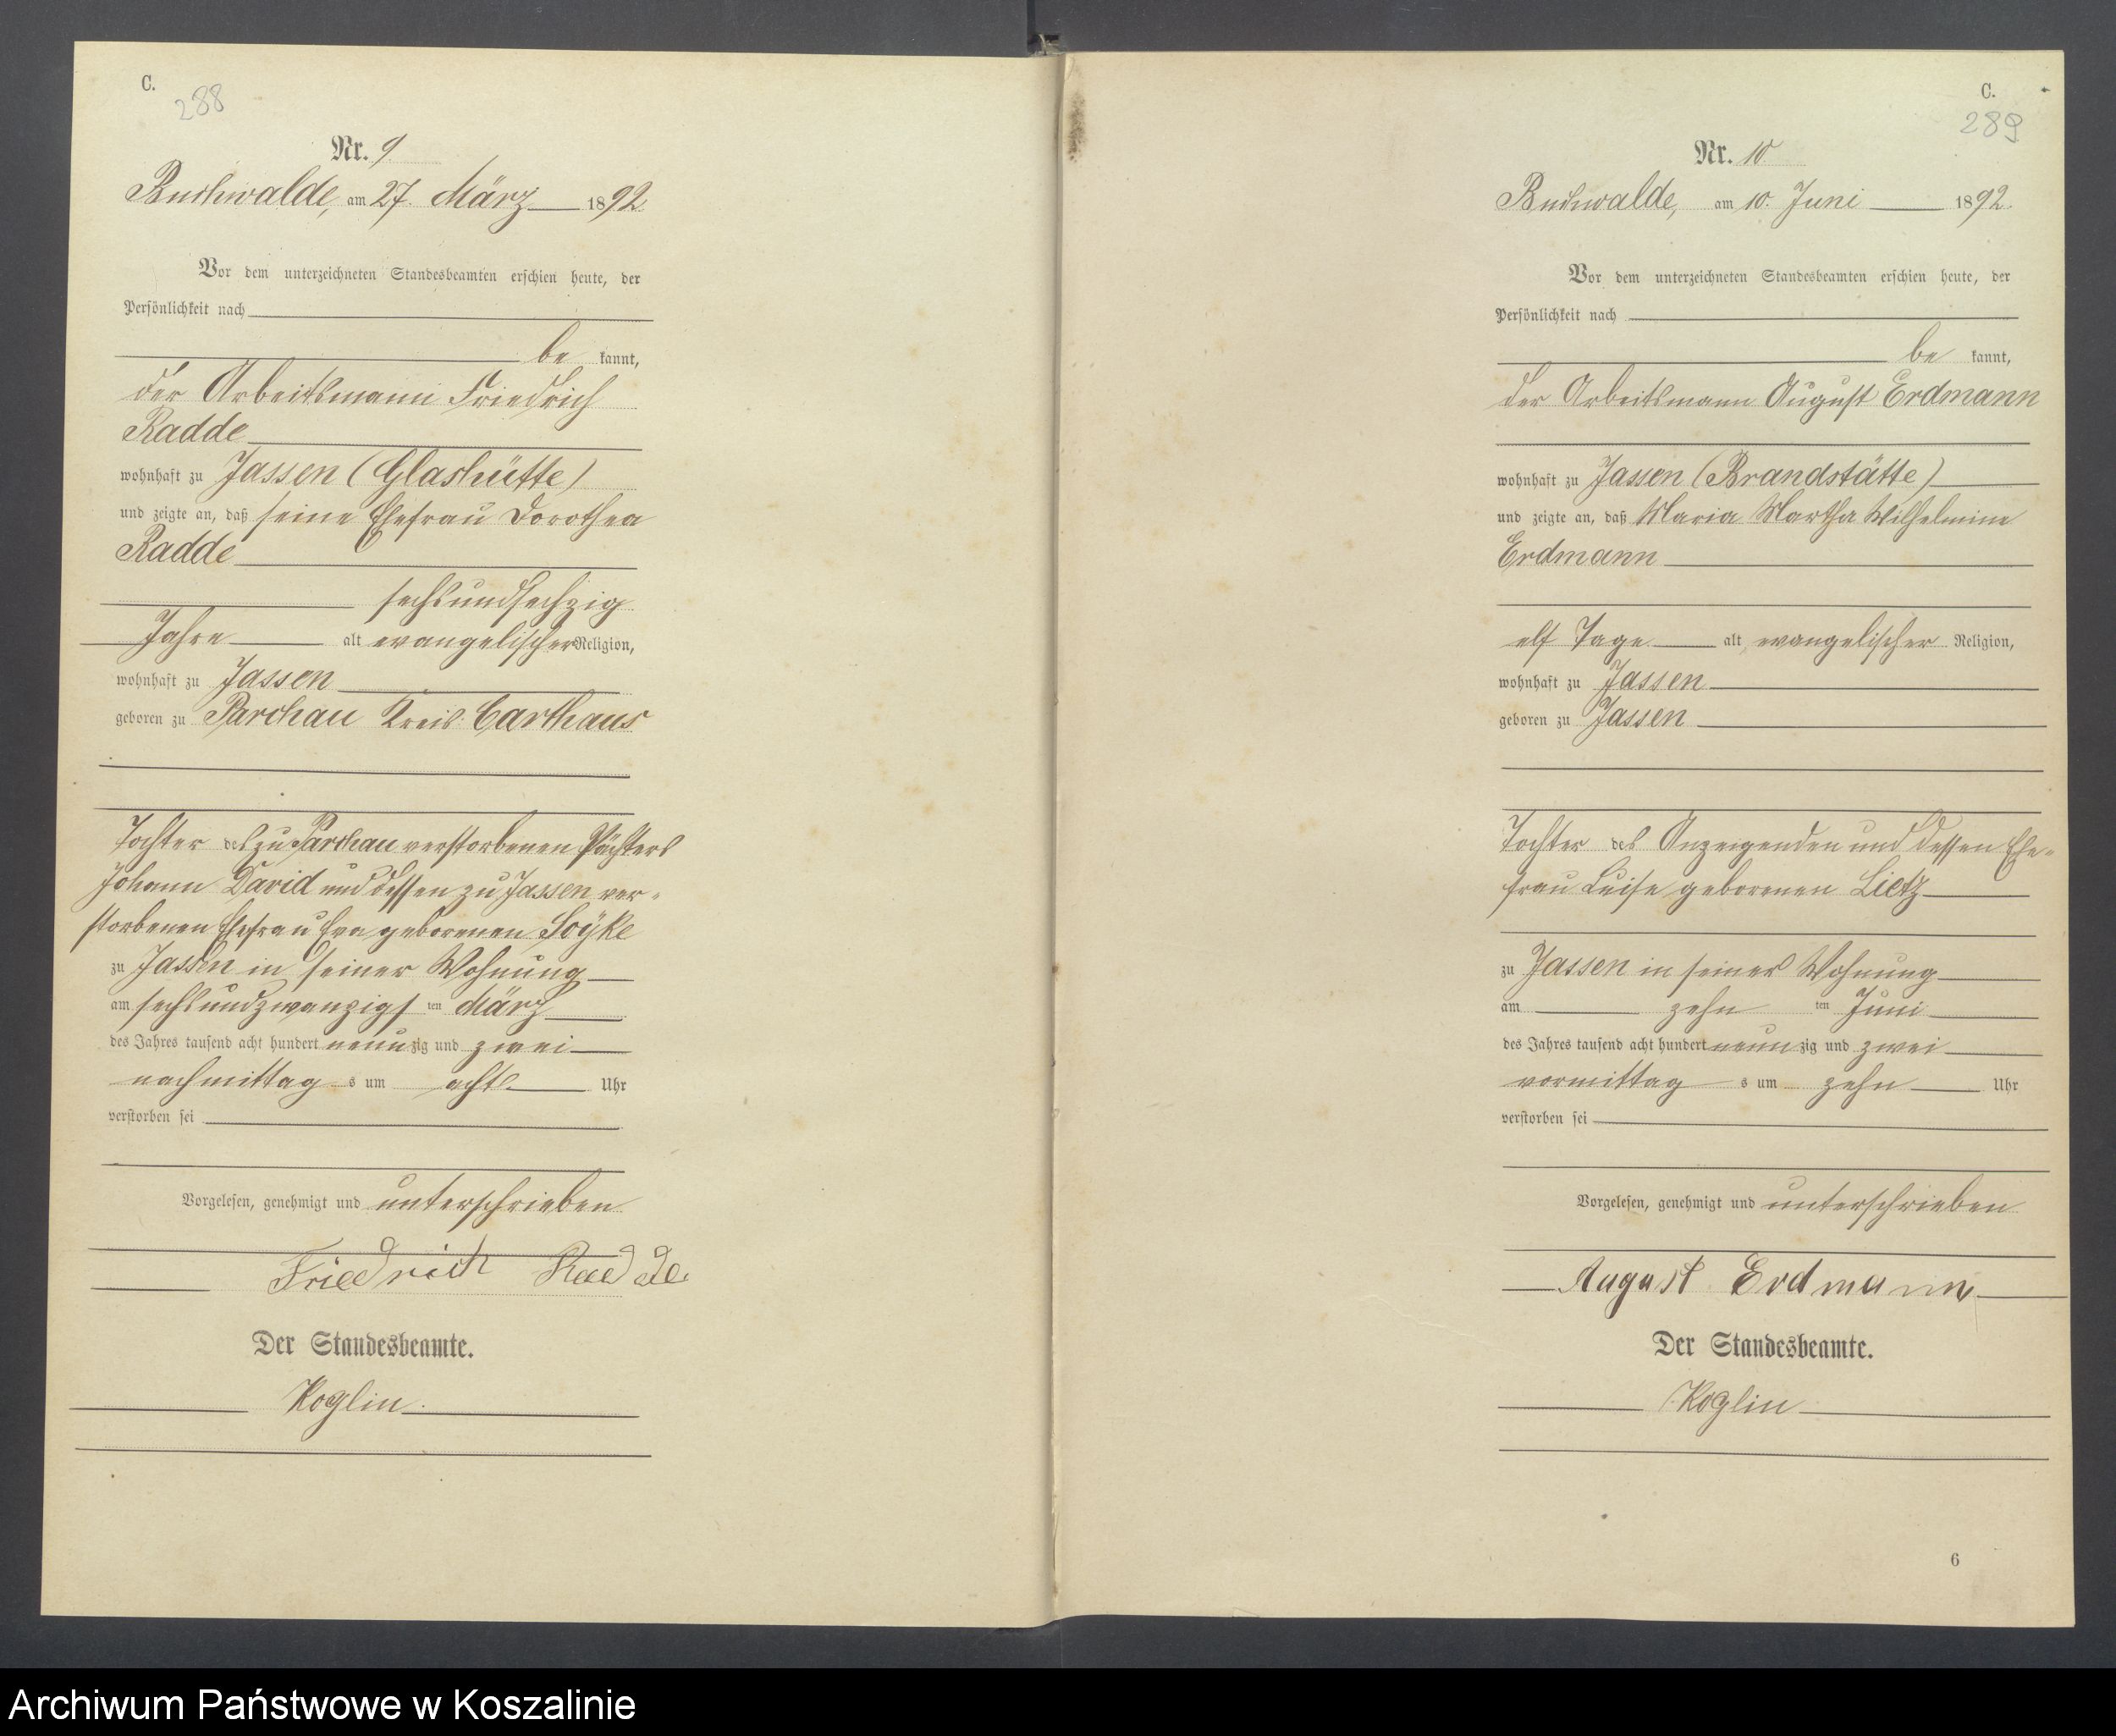 C.
288
Nr. 9
Buchwalde, am 27. März 1892.
Vor dem unterzeichneten Standesbeamten erschien heute, der
Persönlichkeit nach
be kannt,
der Arbeitsmann Friedrich
Radde
wohnhaft zu Jassen (Glashütte)
und zeigte an, daß seine Ehefrau Dorothea
Radde
sechsundsechzig
Jahre alt evangelischer Religion,
wohnhaft zu Jassen
geboren zu Parchau Kreis Carthaus
Tochter des zu Parchau verstorbenen Pächters
Johann David und dessen zu Jassen ver-
storbenen Ehefrau Eva geborenen Soyke
zu Jassen in seiner Wohnung
am sechsundzwanzigs ten März
des Jahres tausend acht hundert neun zig und zwei
nachmittag s um acht Uhr
verstorben sei
Vorgelesen, genehmigt und unterschrieben
Friedrich Radde
Der Standesbeamte.
Koglin.
C.
289
Nr. 10
Buchwalde, am 10. Juni 1892.
Vor dem unterzeichneten Standesbeamten erschien heute, der
Persönlichkeit nach
be kannt,
der Arbeitsmann August Erdmann
wohnhaft zu Jassen (Brandstätte)
und zeigte an, daß Maria Martha Wilhelmine
Erdmann
elf Tage alt, evangelischer Religion,
wohnhaft zu Jassen
geboren zu Jassen
Tochter des Anzeigenden und dessen Ehe-
frau Luise geborenen Lietz
zu Jassen in seiner Wohnung
am zehn ten Juni
des Jahres tausend acht hundert neun zig und zwei
vormittag s um zehn Uhr
verstorben sei
Vorgelesen, genehmigt und unterschrieben
August Erdmann
Der Standesbeamte.
Koglin
6
Archiwum Państwowe w Koszalinie